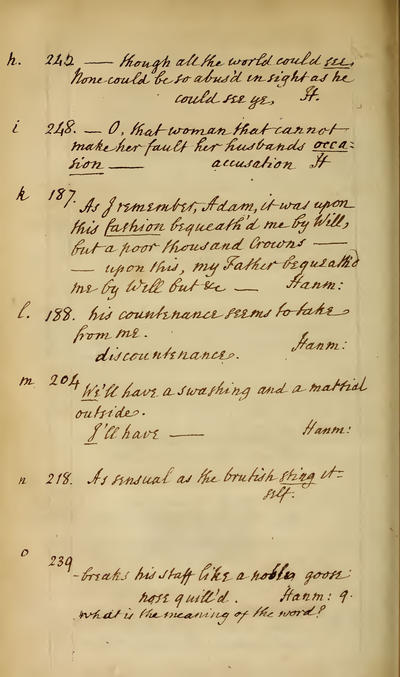 h. 242 — though all the world could see,
None could be so abus'd in sight as he
could see ye, H.
i 248. — O, that woman that cannot
make her fault her husbands occa=
sion — accusation H
k 187. As I remember, Adam, it was upon
this fashion bequeath'd me by Will,
but a poor thousand Crowns —
— upon this, my Father bequeath'd
me by Will but &c — Hanm:
l. 188. his countenance seems to take
from me.
discountenance. Hanm:
m 204 We'll have a swashing and a martial
outside.
I'll have — Hanm:
n 218. As sensual as the brutish sting it=
self.
o 239 -breaks his staff like a noble goose
nose quill'd. Hanm: q.
what is the meaning of the word?